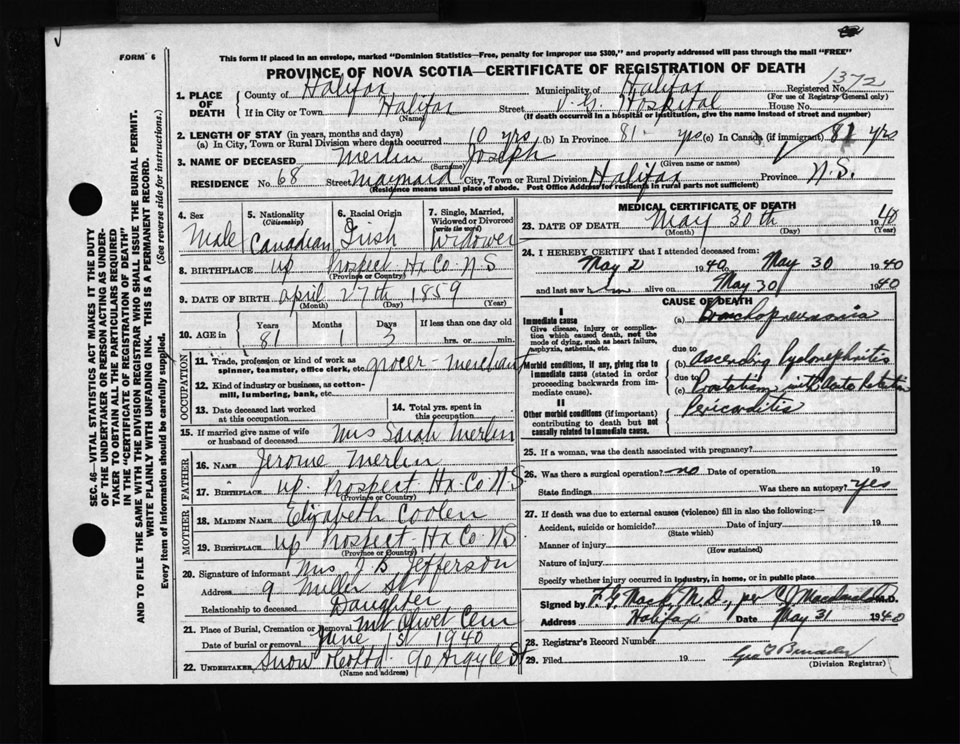 FORM 6
This form if placed in an envelope, marked "Dominion Statistics—Free, penalty for improper use $300," and properly addressed will pass through the mail "FREE"
PROVINCE OF NOVA SCOTIA—CERTIFICATE OF REGISTRATION OF DEATH
1372
1. PLACE OF DEATH
County of Halifax Municipality of Halifax Registered No.
(For use of Registrar General only)
If in City or Town Halifax Street V.G. Hospital House No.
(Name) (If death occurred in a hospital or institution, give the name instead of street and number)
2. LENGTH OF STAY (in years, months and days)
(a) In City, Town or Rural Division where death occurred 10 yrs (b) In Province 81 yrs (c) In Canada (if immigrant) 81 yrs
3. NAME OF DECEASED Merlin Joseph
(Surname) (Given name or names)
RESIDENCE No. 68 Street Maynard City, Town or Rural Division Halifax Province N.S.
(Residence means usual place of abode. Post Office Address for residents in rural parts not sufficient)
4. Sex Male
5. Nationality (Citizenship) Canadian
6. Racial Origin Irish
7. Single, Married, Widowed or Divorced (write the word) Widower
8. BIRTHPLACE up Prospect Hx Co N S
(Province or Country)
9. DATE OF BIRTH April 27th 1859
(Month) (Day) (Year)
10. AGE in Years Months Days If less than one day old
81 1 3 hrs. or min.
OCCUPATION
11. Trade, profession or kind of work as spinner, teamster, office clerk, etc. grocer - merchant
12. Kind of industry or business, as cotton-mill, lumbering, bank, etc.
13. Date deceased last worked at this occupation
14. Total yrs. spent in this occupation
15. If married give name of wife or husband of deceased Mrs Sarah Merlin
FATHER
16. NAME Jerome Merlin
17. BIRTHPLACE up. Prospect Hx. Co. N S
(Province or Country)
MOTHER
18. MAIDEN NAME Elizabeth Coolen
19. BIRTHPLACE up Prospect Hx Co. N S
(Province or Country)
20. Signature of informant Mrs J B Jefferson
Address 9 Muller
Relationship to deceased Daughter
21. Place of Burial, Cremation or Removal Mt Olivet Cem
Date of burial or removal June 1st 1940
22. UNDERTAKER Snow & Co Ltd - 90 Argyle St
(Name and address)
MEDICAL CERTIFICATE OF DEATH
23. DATE OF DEATH May 30th 1940
(Month) (Day) (Year)
24. I HEREBY CERTIFY that I attended deceased from:
May 2 1940 to May 30 1940
and last saw him alive on May 30 1940
CAUSE OF DEATH
I
Immediate cause
Give disease, injury or complication which caused death, not the mode of dying, such as heart failure, asphyxia, asthenia, etc.
(a) Bronchopneumonia
due to
Morbid conditions, if any, giving rise to immediate cause (stated in order proceeding backwards from immediate cause).
(b) Ascending Pyelonephritis
due to
(c) Prostatism with Acute Retention
II
Other morbid conditions (if important) contributing to death but not causally related to immediate cause.
Pericarditis
25. If a woman, was the death associated with pregnancy?
26. Was there a surgical operation? no Date of operation 19
State findings Was there an autopsy? yes
27. If death was due to external causes (violence) fill in also the following:—
Accident, suicide or homicide? Date of injury 19
(State which)
Manner of injury
(How sustained)
Nature of injury
Specify whether injury occurred in industry, in home, or in public place
Signed by F. G. Mack, M.D., per C J Macdonald M.D.
Address Halifax Date May 31 1940
28. Registrar's Record Number
29. Filed 19
(Division Registrar)
SEC. 46—VITAL STATISTICS ACT MAKES IT THE DUTY OF THE UNDERTAKER OR PERSON ACTING AS UNDERTAKER TO OBTAIN ALL THE PARTICULARS REQUIRED IN THE "CERTIFICATE OF REGISTRATION OF DEATH"
AND TO FILE THE SAME WITH THE DIVISION REGISTRAR WHO SHALL ISSUE THE BURIAL PERMIT.
WRITE PLAINLY WITH UNFADING INK. THIS IS A PERMANENT RECORD.
Every item of information should be carefully supplied. (See reverse side for instructions.)